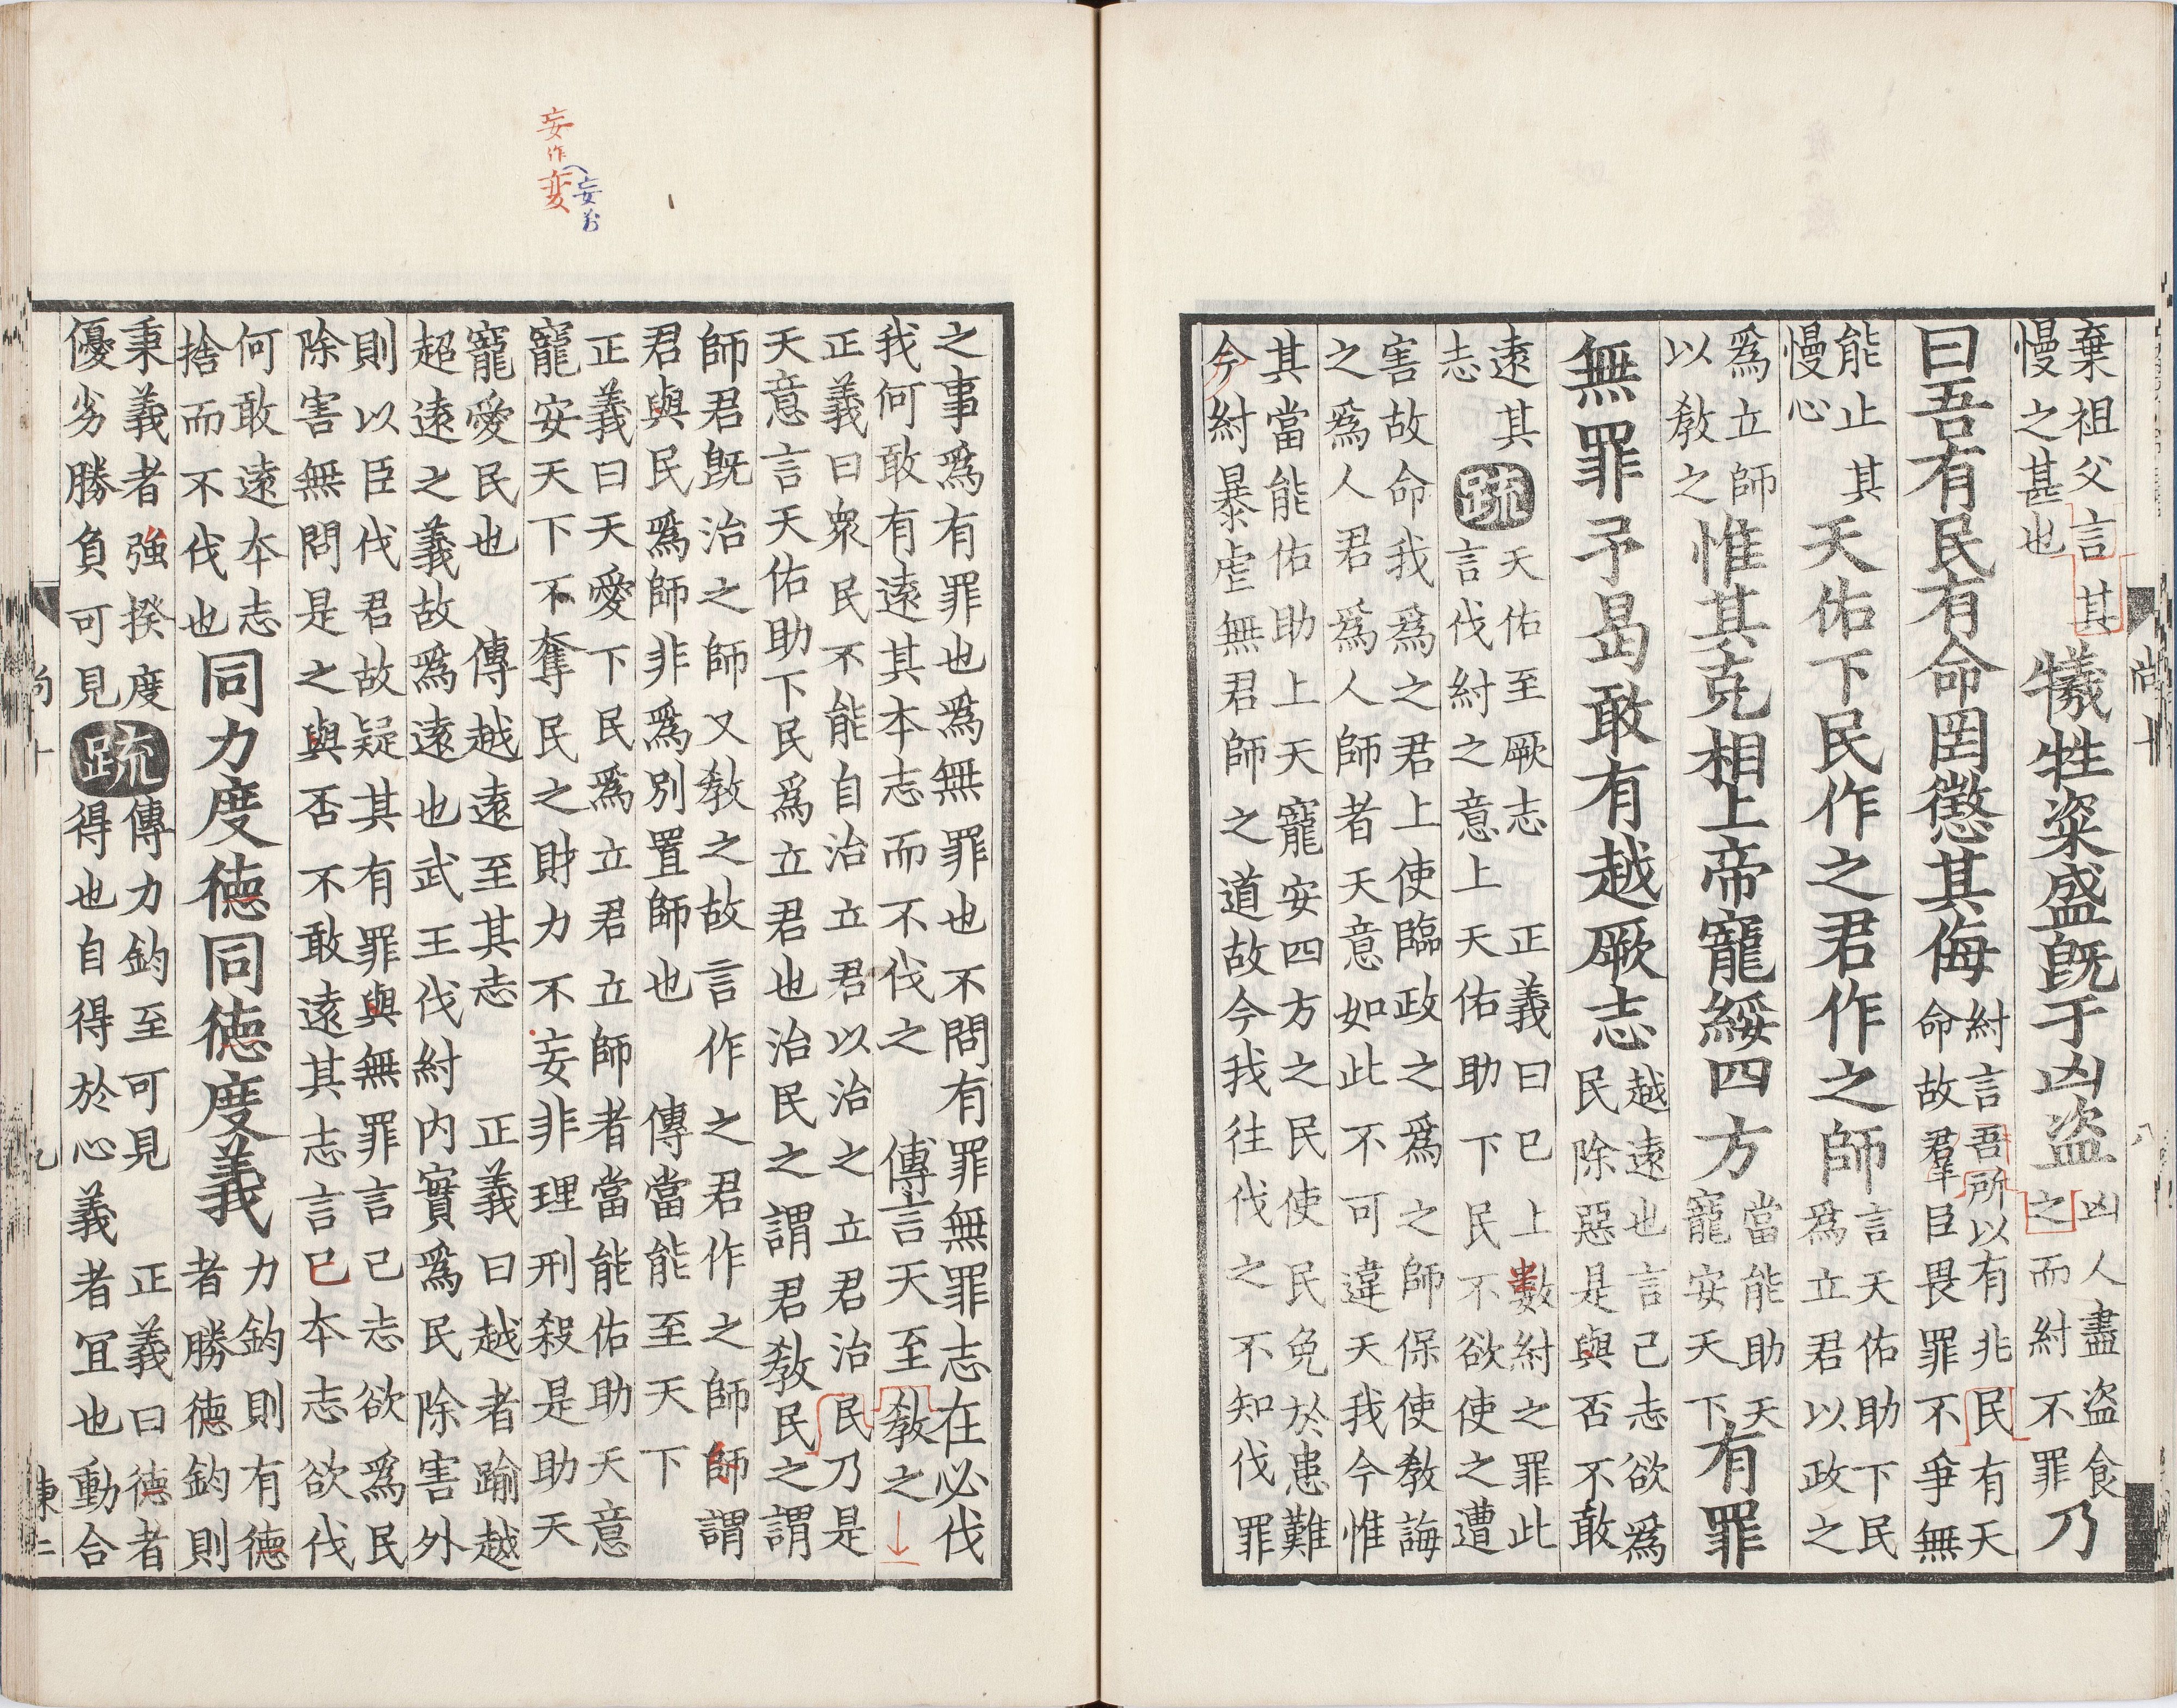 棄祖父言其慢之甚也犧牲粢盛旣于凶盗凶人盡盗食之而紂不罪乃
曰吾有民有命罔懲其侮紂言吾所以有兆民有天命故羣臣畏罪不爭無
能止其慢心天佑下民作之君作之師言天佑助下民爲立君以政之
爲立師以敎之惟其克相上帝寵綏四方當能助天寵安天下有罪
無罪予曷敢有越厥志越遠也言己志欲爲民除惡是與否不敢
遠其志疏天佑至厥志　正義曰巳上數紂之罪此言伐紂之意上天佑助下民不欲使之遭
害故命我爲之君上使臨政之爲之師保使敎誨
之爲人君爲人師者天意如此不可違天我今惟
其當能佑助上天寵安四方之民使民免於患難
今紂暴虐無君師之道故今我往伐之不知伐罪
尚十
八
妄作変
妄歟
之事爲有罪也爲無罪也不問有罪無罪志在必伐
我何敢有遠其本志而不伐之　傳言天至敎之
正義曰衆民不能自治立君以治之立君治民乃是
天意言天佑助下民爲立君也治民之謂君敎民之謂
師君旣治之師又敎之故言作之君作之師師謂
君與民爲師非爲別置師也　傳當能至天下
正義曰天愛下民爲立君立師者當能佑助天意
寵安天下不奪民之財力不妄非理刑殺是助天
寵愛民也　傳越遠至其志　正義曰越者踰越
超遠之義故爲遠也武王伐紂內實爲民除害外
則以臣伐君故疑其有罪與無罪言己志欲爲民
除害無問是之與否不敢遠其志言己本志欲伐
何敢遠本志捨而不伐也同力度德同德度義力鈞則有德者勝德鈞則
秉義者強揆度優劣勝負可見疏傳力鈞至可見　正義曰德者得也自得於心義者冝也動合